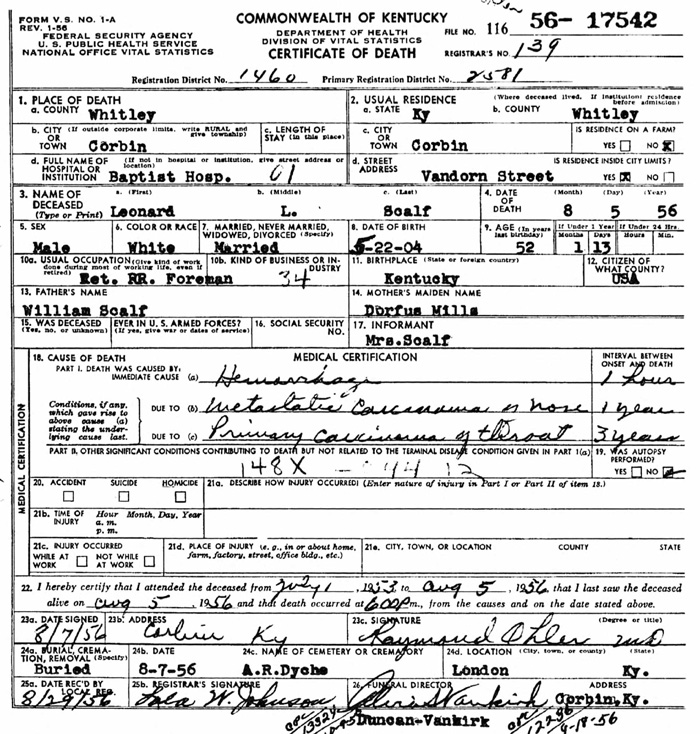 FORM V.S. NO. 1-A
REV. 1-56
FEDERAL SECURITY AGENCY
U. S. PUBLIC HEALTH SERVICE
NATIONAL OFFICE VITAL STATISTICS
COMMONWEALTH OF KENTUCKY
DEPARTMENT OF HEALTH
DIVISION OF VITAL STATISTICS
CERTIFICATE OF DEATH
FILE NO. 116 56- 17542
REGISTRAR'S NO. 139
Registration District No. 1460 Primary Registration District No. 2581
1. PLACE OF DEATH
a. COUNTY Whitley
2. USUAL RESIDENCE (Where deceased lived. If institution: residence before admission)
a. STATE Ky b. COUNTY Whitley
b. CITY (If outside corporate limits, write RURAL and give township)
OR TOWN Corbin
c. LENGTH OF STAY (in this place)
c. CITY OR TOWN Corbin
IS RESIDENCE ON A FARM?
YES NO X
d. FULL NAME OF HOSPITAL OR INSTITUTION (If not in hospital or institution, give street address or location)
Baptist Hosp. 01
d. STREET ADDRESS Vandorn Street
IS RESIDENCE INSIDE CITY LIMITS?
YES X NO
3. NAME OF DECEASED (Type or Print)
a. (First) b. (Middle) c. (Last)
Leonard L. Scalf
4. DATE OF DEATH (Month) (Day) (Year)
8 5 56
5. SEX
Male
6. COLOR OR RACE
White
7. MARRIED, NEVER MARRIED, WIDOWED, DIVORCED (Specify)
Married
8. DATE OF BIRTH
5-22-04
9. AGE (In years last birthday) If Under 1 Year If Under 24 Hrs.
Months Days Hours Min.
52 1 13
10a. USUAL OCCUPATION (Give kind of work done during most of working life, even if retired)
Ret. RR. Foreman
10b. KIND OF BUSINESS OR INDUSTRY
34
11. BIRTHPLACE (State or foreign country)
Kentucky
12. CITIZEN OF WHAT COUNTY?
USA
13. FATHER'S NAME
William Scalf
14. MOTHER'S MAIDEN NAME
Dorfus Mills
15. WAS DECEASED EVER IN U. S. ARMED FORCES?
(Yes, no, or unknown) (If yes, give war or dates of service)
16. SOCIAL SECURITY NO.
17. INFORMANT
Mrs.Scalf
MEDICAL CERTIFICATION
18. CAUSE OF DEATH MEDICAL CERTIFICATION
INTERVAL BETWEEN ONSET AND DEATH
PART I. DEATH WAS CAUSED BY:
IMMEDIATE CAUSE (a) Hemorrhage 1 hour
Conditions, if any, which gave rise to above cause (a) stating the underlying cause last.
DUE TO (b) Metastatic Carcinoma of nose 1 year
DUE TO (c) Primary carcinoma of throat 3 years
PART II. OTHER SIGNIFICANT CONDITIONS CONTRIBUTING TO DEATH BUT NOT RELATED TO THE TERMINAL DISEASE CONDITION GIVEN IN PART I(a)
148X
19. WAS AUTOPSY PERFORMED?
YES NO
20. ACCIDENT SUICIDE HOMICIDE
21a. DESCRIBE HOW INJURY OCCURRED: (Enter nature of injury in Part I or Part II of item 18.)
21b. TIME OF INJURY Hour Month, Day, Year
a. m.
p. m.
21c. INJURY OCCURRED
WHILE AT WORK NOT WHILE AT WORK
21d. PLACE OF INJURY (e. g., in or about home, farm, factory, street, office bldg., etc.)
21e. CITY, TOWN, OR LOCATION COUNTY STATE
22. I hereby certify that I attended the deceased from July 1, 1953 to Aug 5, 1956, that I last saw the deceased
alive on Aug 5, 1956 and that death occurred at 600P m., from the causes and on the date stated above.
23a. DATE SIGNED
8/7/56
23b. ADDRESS
Corbin Ky
23c. SIGNATURE (Degree or title)
Raymond Ohler MD
24a. BURIAL, CREMATION, REMOVAL (Specify)
Buried
24b. DATE
8-7-56
24c. NAME OF CEMETERY OR CREMATORY
A.R.Dyche
24d. LOCATION (City, town, or county) (State)
London Ky.
25a. DATE REC'D BY LOCAL REG.
8/29/56
25b. REGISTRAR'S SIGNATURE
Lola W. Johnson
26. FUNERAL DIRECTOR ADDRESS
Vankirk Corbin, Ky.
Duncan-Vankirk